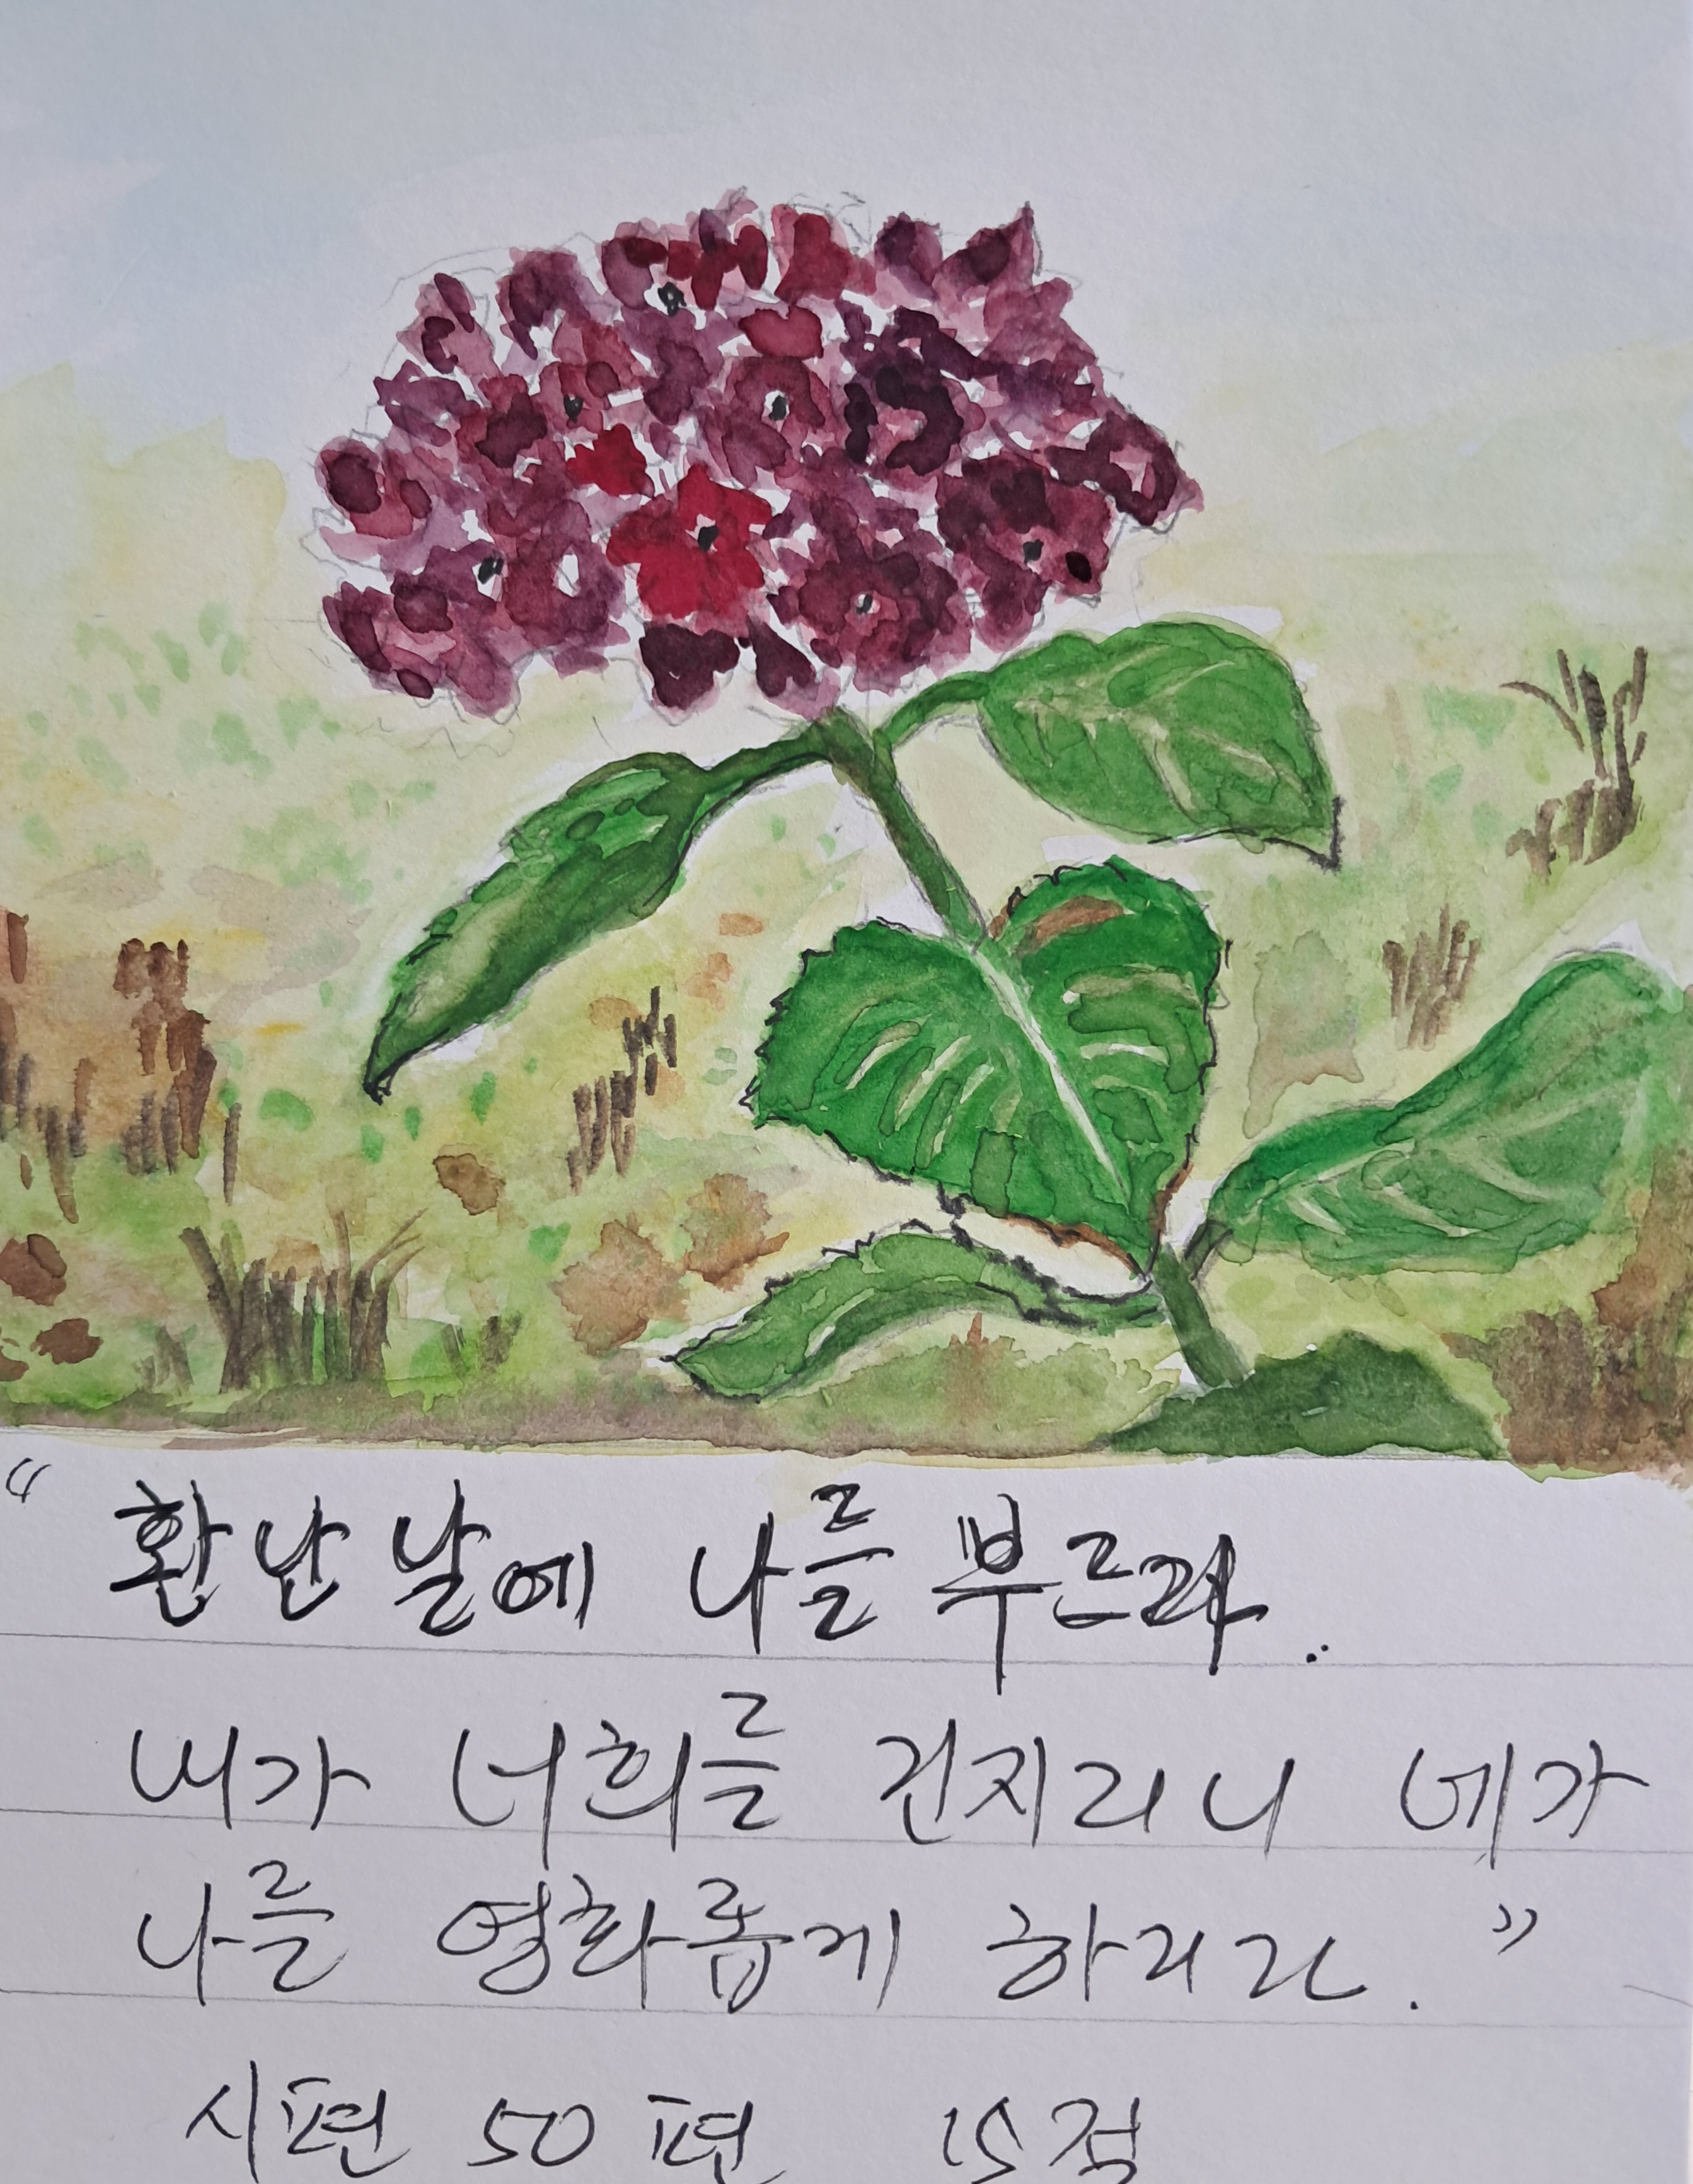 “환난 날에 나를 부르라..
내가 너희를 건지리니 네가
나를 영화롭게 하리라.”
시편 50편 15절